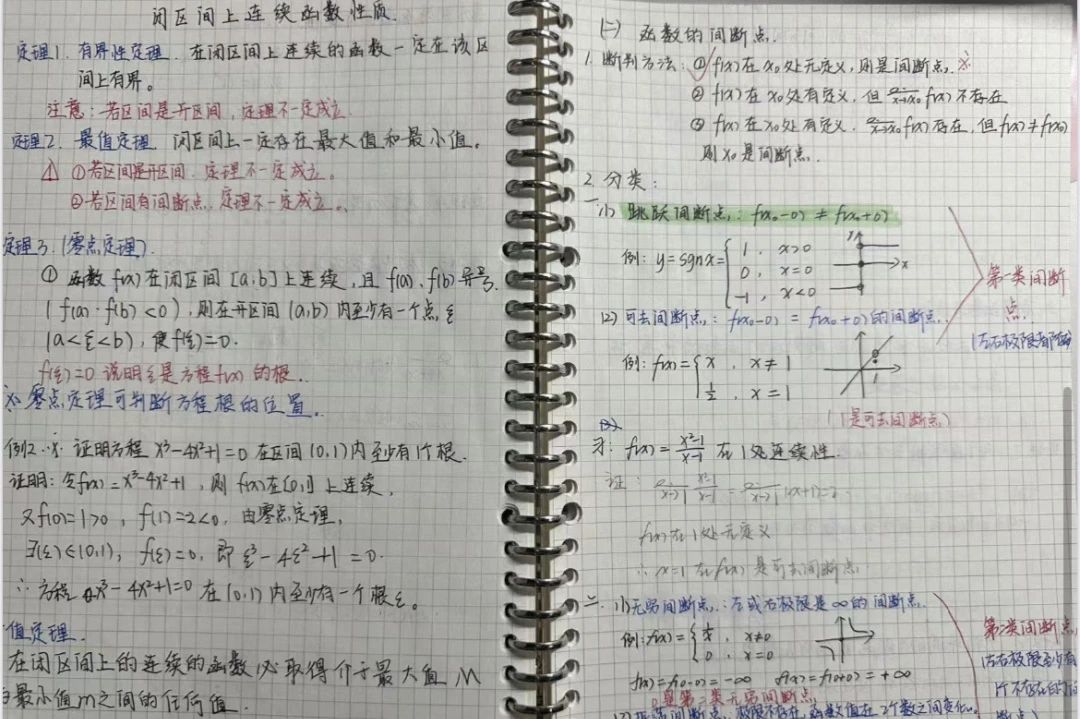 闭区间上连续函数性质.
定理1. 有界性定理. 在闭区间上连续的函数一定在该区
间上有界。
注意：若区间是开区间，定理不一定成立.
定理2. 最值定理. 闭区间上一定存在最大值和最小值。
⚠ ①若区间是开区间，定理不一定成立。
②若区间有间断点，定理不一定成立。
定理3.(零点定理).
① 函数f(x)在闭区间[a,b]上连续，且f(a)、f(b)异号
(f(a)·f(b)<0)，则在开区间(a,b)内至少有一个点ξ
(a<ξ<b)，使f(ξ)=0.
f(ξ)=0 说明ξ是方程f(x)的根..
※ 零点定理可判断方程根的位置.
例2.※. 证明方程 x³-4x²+1=0 在区间(0,1)内至少有1个根.
证明：令f(x)=x³-4x²+1，则f(x)在[0,1]上连续，
又f(0)=1>0，f(1)=-2<0，由零点定理，
∃(ξ)∈(0,1)，f(ξ)=0，即 ξ³-4ξ²+1=0.
∴ 方程 x³-4x²+1=0 在(0,1)内至少有一个根ξ。
值定理.
在闭区间上的连续的函数必取得介于最大值M
最小值m之间的任何值.
(二) 函数的间断点.
1. 断判方法：①f(x)在x₀处无定义，则是间断点.※
② f(x)在x₀处有定义，但 lim x→x₀ f(x)不存在
③ f(x)在x₀处有定义，lim x→x₀ f(x)存在，但f(x)≠f(x₀)
则x₀是间断点.
2. 分类：
一(1) 跳跃间断点：f(x₀-0)≠f(x₀+0)
例：y=sgnx={ 1, x>0
0, x=0
-1, x<0
y
x
第一类间断
点.
(左右极限都存在)
(2) 可去间断点：f(x₀-0)=f(x₀+0)的间断点.
例：f(x)={ x, x≠1
½, x=1
1
(1是可去间断点)
f(x)=x²-1/x-1 在1处连续性.
证：lim x→1 x²-1/x-1 = lim x→1 (x+1)=2
f(x)在1处无定义
∴ x=1 在f(x)是可去间断点
二.(1)无穷间断点：左或右极限是∞的间断点.
例:f(x)={ 1/x, x≠0
0, x=0
f(x)=f(0-0)=-∞ f(x)=f(0+0)=+∞
是第二类无穷间断点
第二类间断点
(左右极限至少有
1个不存在的间
断点)
(2)振荡间断点，极限不存在，函数值在2个数之间变化.